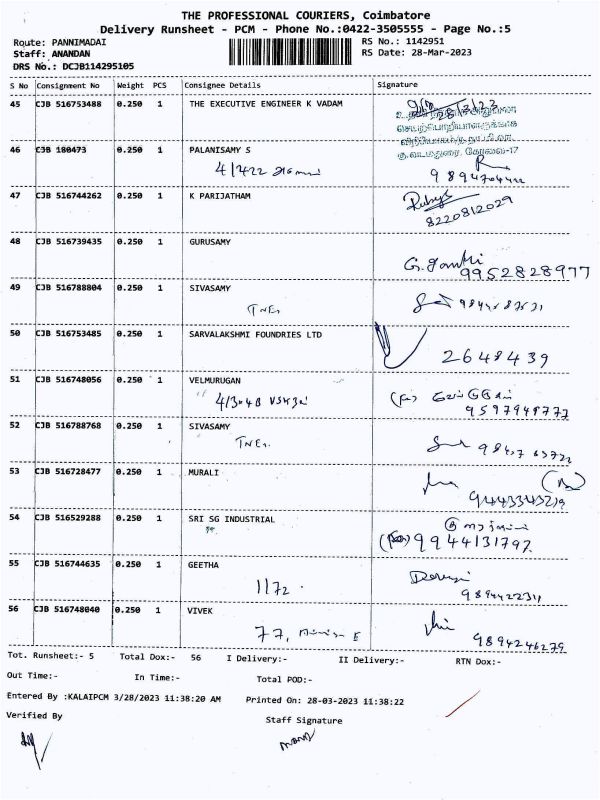 THE PROFESSIONAL COURIERS, Coimbatore
Delivery Runsheet - PCM - Phone No.:0422-3505555 - Page No.:5
Route: PANNIMADAI
Staff: ANANDAN
DRS No.: DCJB114295105
RS No.: 1142951
RS Date: 28-Mar-2023
S No Consignment No Weight PCS Consignee Details Signature
45 CJB 516753488 0.250 1 THE EXECUTIVE ENGINEER K VADAM
46 CJB 180473 0.250 1 PALANISAMY S
4/422
47 CJB 516744262 0.250 1 K PARIJATHAM
8220812029
48 CJB 516739435 0.250 1 GURUSAMY
G. Gandhi
9952828977
49 CJB 516788804 0.250 1 SIVASAMY
50 CJB 516753485 0.250 1 SARVALAKSHMI FOUNDRIES LTD
2648439
51 CJB 516748056 0.250 1 VELMURUGAN
9597949777
52 CJB 516788768 0.250 1 SIVASAMY
53 CJB 516728477 0.250 1 MURALI
54 CJB 516529288 0.250 1 SRI SG INDUSTRIAL
9944131797
55 CJB 516744635 0.250 1 GEETHA
1172
56 CJB 516748040 0.250 1 VIVEK
77,
9894246279
Tot. Runsheet:- 5 Total Dox:- 56 I Delivery:- II Delivery:- RTN Dox:-
Out Time:- In Time:- Total POD:-
Entered By :KALAIPCM 3/28/2023 11:38:20 AM Printed On: 28-03-2023 11:38:22
Verified By Staff Signature